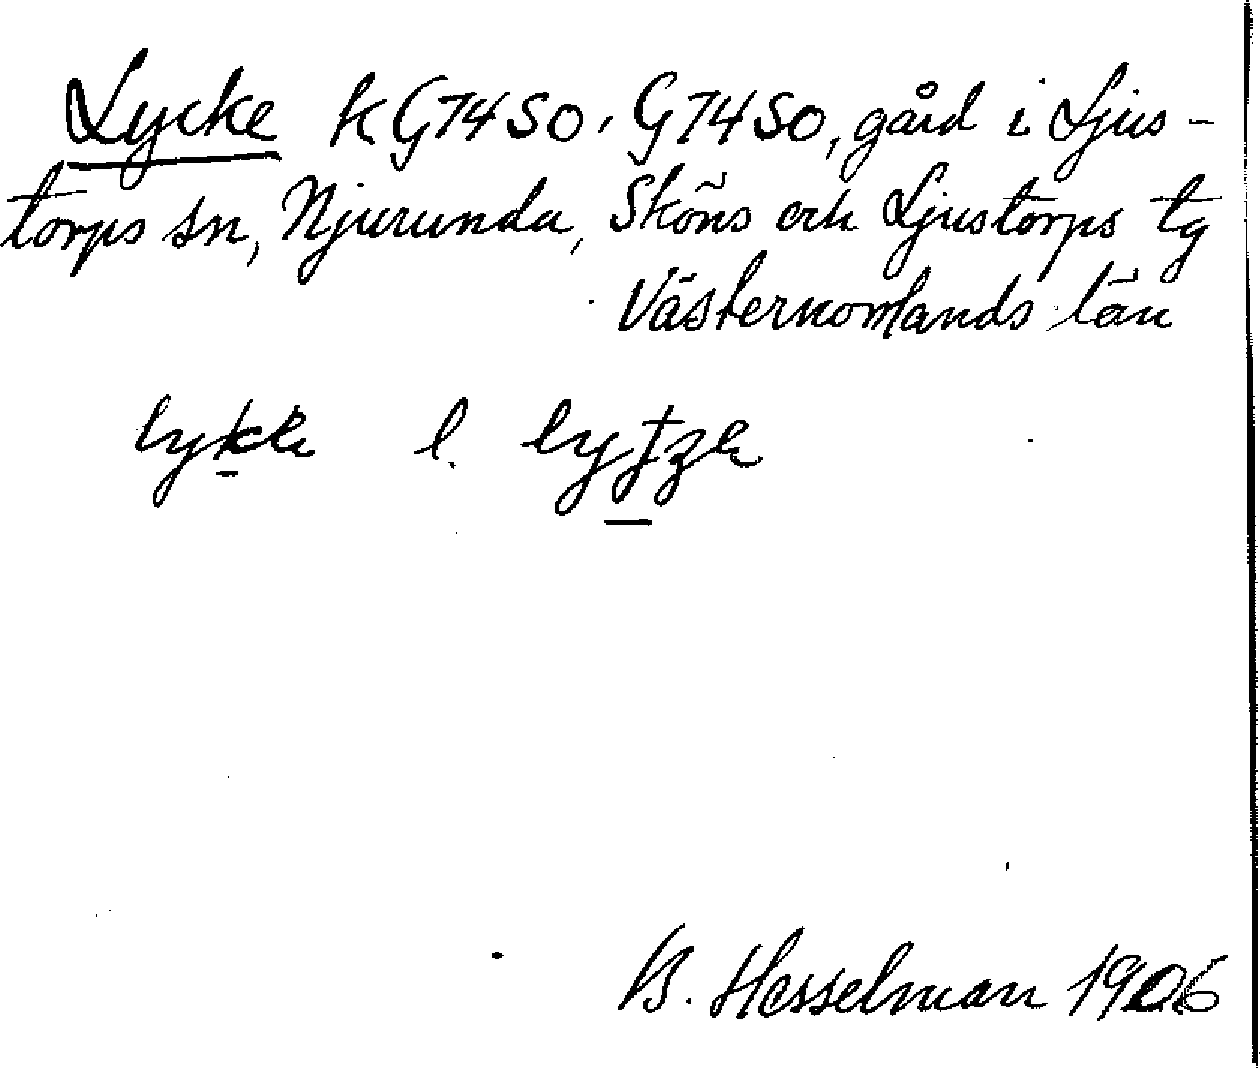 Lycke KG74SO, G74SO, gård i Ljus-
torps sn, Njurunda, Sköns och Ljustorps tg
Västernorrlands län
lykk l.
B. Hesselman 1906